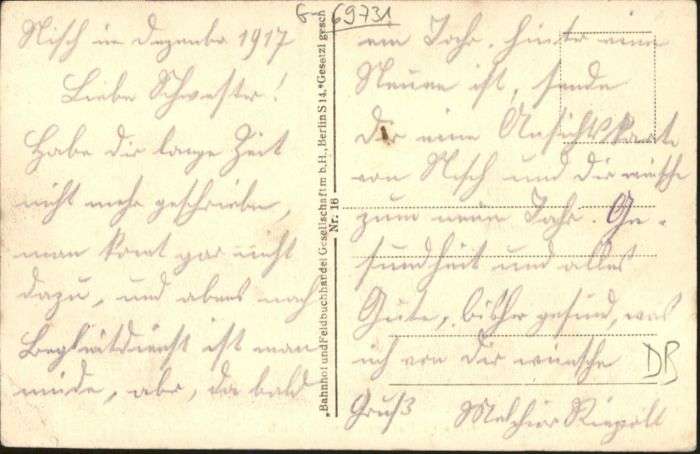 Nisch im Dezember 1917
Liebe Schwester!
Habe dir lange Zeit
nicht mehr geschrieben,
man komt gar nicht
dazu, und abens nach
Begleitdienst ist man
müde, aber, da bald
„Bahnhof und Feldbuchhandel Gesellschaft m b.H., Berlin S 14.“ Gesetzl gesch
Nr. 16
69731
ein Jahr. hinter eine
Neuen ist, sende
Dir eine Ansichtskarte
von Nisch und dir wünsche
zum neuen Jahr. Ge-
sundheit und alles
Gute, bisher gesund, was
ich von Dir wünsche
DB
Gruß Melchior